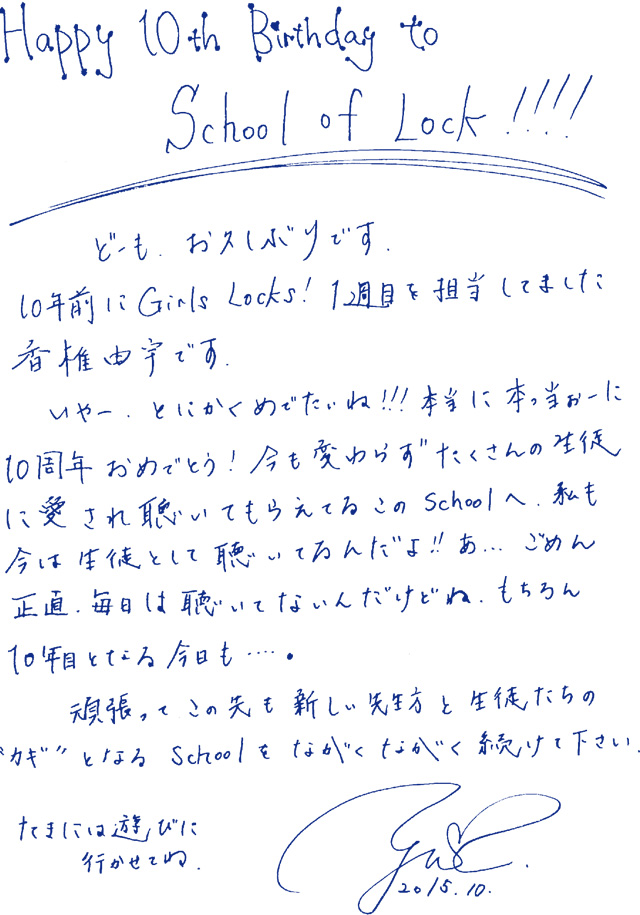 Happy 10th Birthday to
School of Lock!!!!
どーも、お久しぶりです.
10年前に Girls Locks! 1週目を担当してました
香椎由宇です.
いやー、とにかくめでたいね!!!本当に本っ当おーに
10周年おめでとう!今も変わらずたくさんの生徒
に愛され聴いてもらえてるこのSchoolへ、私も
今は生徒として聴いてるんだよ!!あ…ごめん
正直、毎日は聴いてないんだけどね、もちろん
10年目となる今日も‥‥.
頑張ってこの先も新しい先生方と生徒たちの
"カギ"となるSchoolをながくながく続けて下さい.
たまには遊びに
行かせてね.
2015.10.